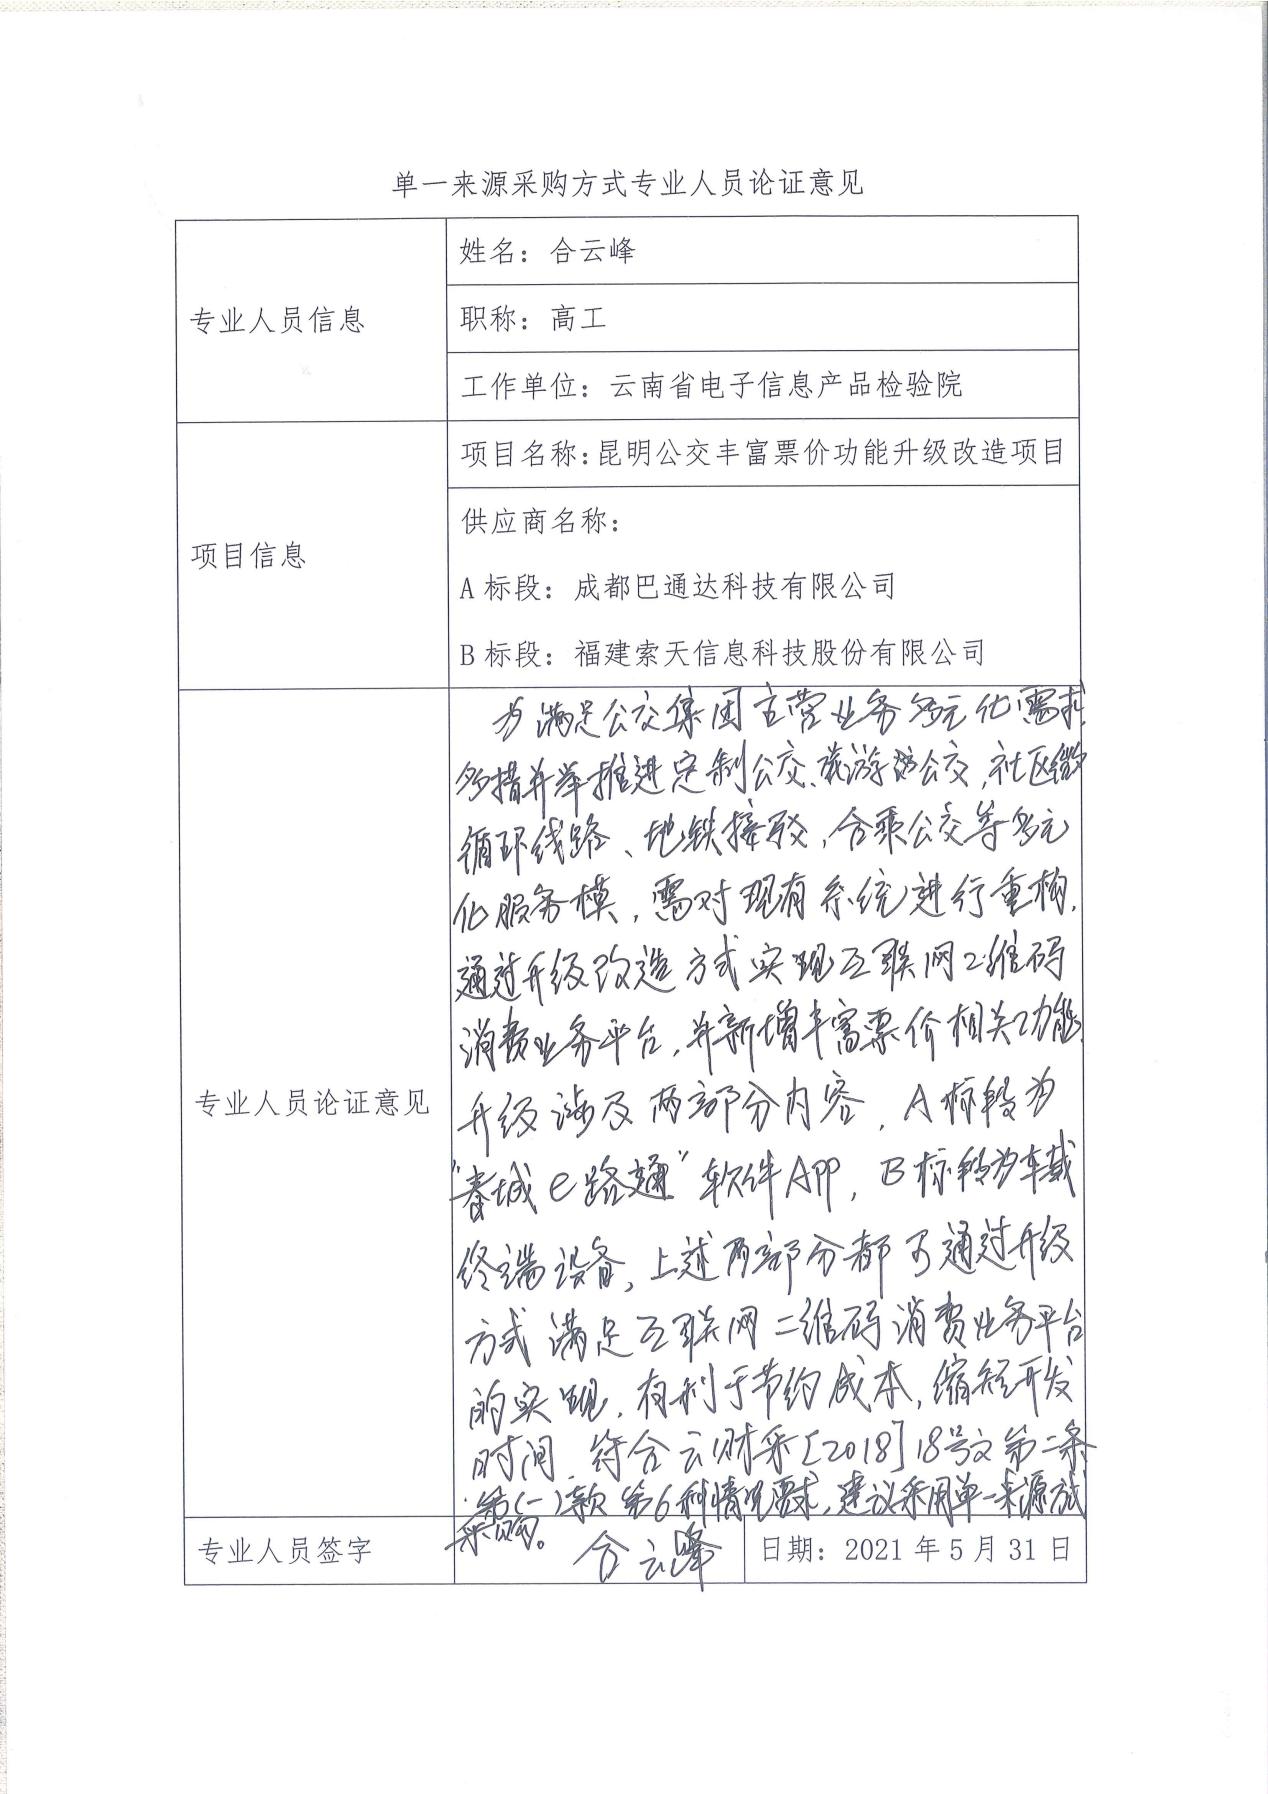 单一来源采购方式专业人员论证意见
专业人员信息
姓名：合云峰
职称：高工
工作单位：云南省电子信息产品检验院
项目信息
项目名称:昆明公交丰富票价功能升级改造项目
供应商名称：
A 标段：成都巴通达科技有限公司
B 标段：福建索天信息科技股份有限公司
专业人员论证意见
为满足公交集团主营业务多元化需求,
多措并举推进定制公交、旅游公交,社区微
循环线路、地铁接驳,合乘公交等多元
化服务模,需对现有系统进行重构.
通过升级改造方式实现互联网二维码
消费业务平台,并新增丰富票价相关功能.
升级涉及两部分内容,A标段为
“春城e路通”软件APP,B标段为车载
终端设备,上述两部分都可通过升级
方式满足互联网二维码消费业务平台
的实现,有利于节约成本,缩短开发
时间.符合云财采[2018]18号文第二条
第(一)款第6种情况要求,建议采用单一来源方式
采购。
专业人员签字
合云峰
日期：2021 年 5 月 31 日